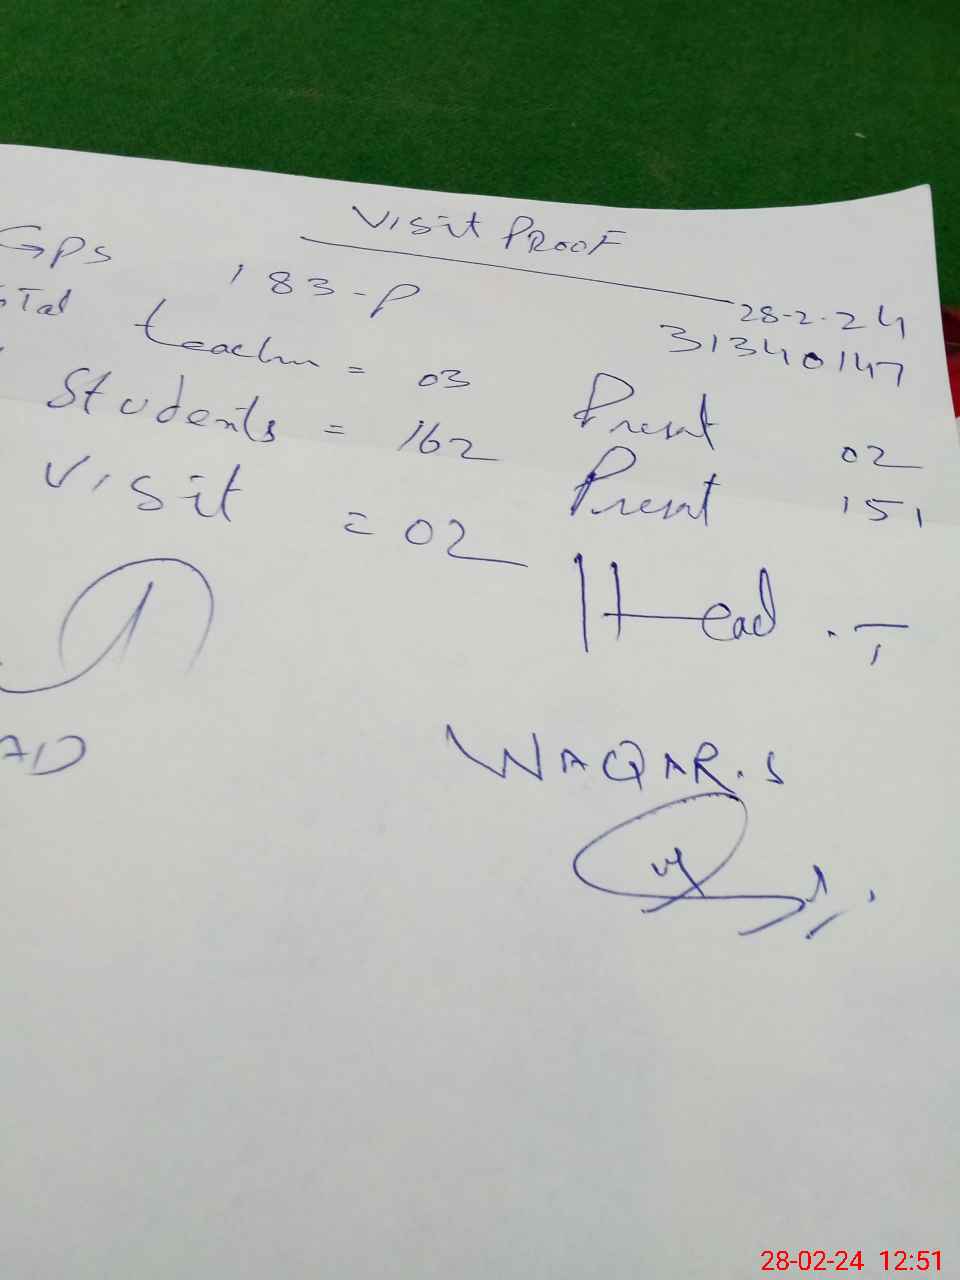 Visit PROOF
GPS 183-P 28-2-24
31340147
Total teacher = 03 Present 02
Students = 162 Present 151
Visit = 02
Head . T
WAQAR.S
28-02-24 12:51